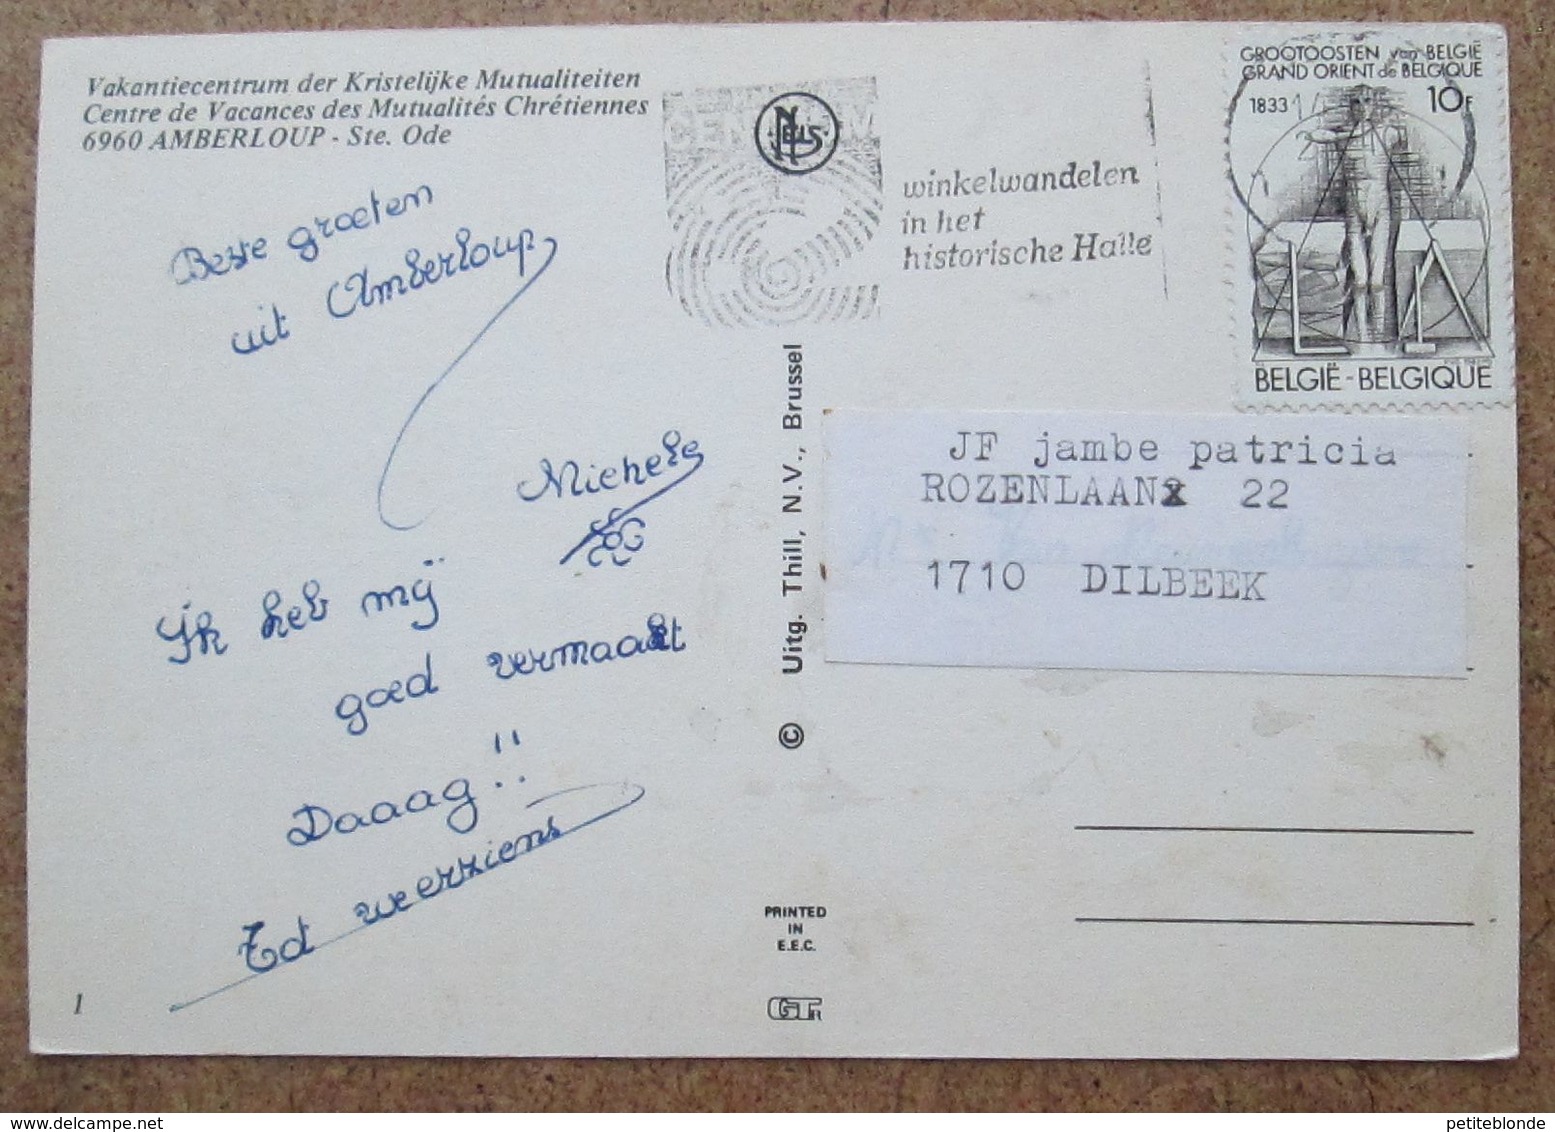 Vakantiecentrum der Kristelijke Mutualiteiten
Centre de Vacances des Mutualités Chrétiennes
6960 AMBERLOUP - Ste. Ode
Beste groeten
uit Amberloup
Michele
Ik heb mij
goed vermaakt
Daaag!!
Tot weerziens
1
NELS
winkelwandelen
in het
historische Halle
GROOTOOSTEN van BELGIË
GRAND ORIENT de BELGIQUE
1833
10F
BELGIË-BELGIQUE
© Uitg. Thill, N.V., Brussel
JF jambe patricia
ROZENLAAN 22
1710 DILBEEK
PRINTED
IN
E.E.C.
petiteblonde